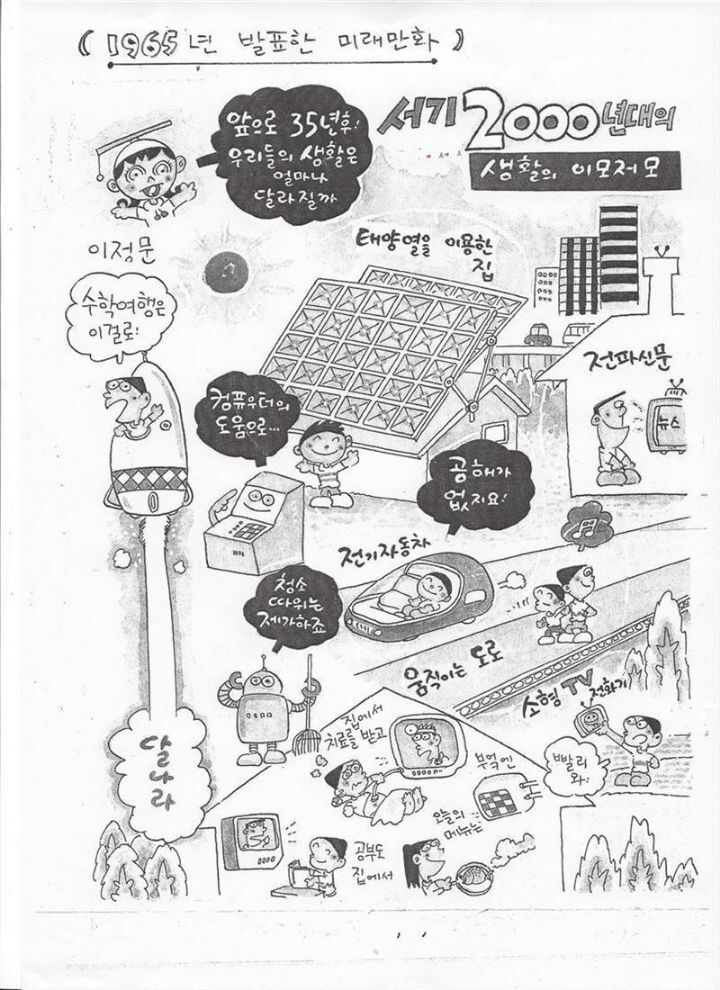 (1965년 발표한 미래만화)
앞으로 35년후!
우리들의 생활은
얼마나
달라질까
서기 2000년대의
생활의 이모저모
이정문
수학여행은
이걸로!
태양열을 이용한
집
전파신문
뉴스
컴퓨우터의
도움으로...
공해가
없지요!
전기자동차
청소
따위는
제가하죠
움직이는 도로
소형 TV 전화기
빨리
와!
달나라
집에서
치료를 받고
부엌엔
오늘의
메뉴는
공부도
집에서